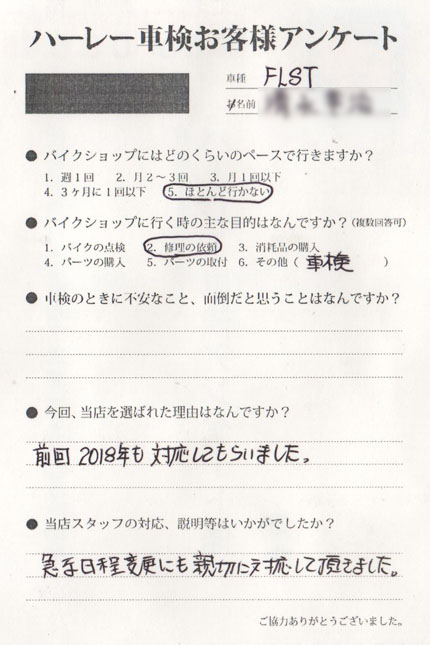 ハーレー車検お客様アンケート
車種 FLST
お名前
● バイクショップにはどのくらいのペースで行きますか？
1. 週1回 2. 月2～3回 3. 月1回以下
4. 3ヶ月に1回以下 5. ほとんど行かない
● バイクショップに行く時の主な目的はなんですか？(複数回答可)
1. バイクの点検 2. 修理の依頼 3. 消耗品の購入
4. パーツの購入 5. パーツの取付 6. その他（ 車検 ）
● 車検のときに不安なこと、面倒だと思うことはなんですか？
● 今回、当店を選ばれた理由はなんですか？
前回 2018年も対応してもらいました。
● 当店スタッフの対応、説明等はいかがでしたか？
急な日程変更にも親切に対応して頂きました。
ご協力ありがとうございました。